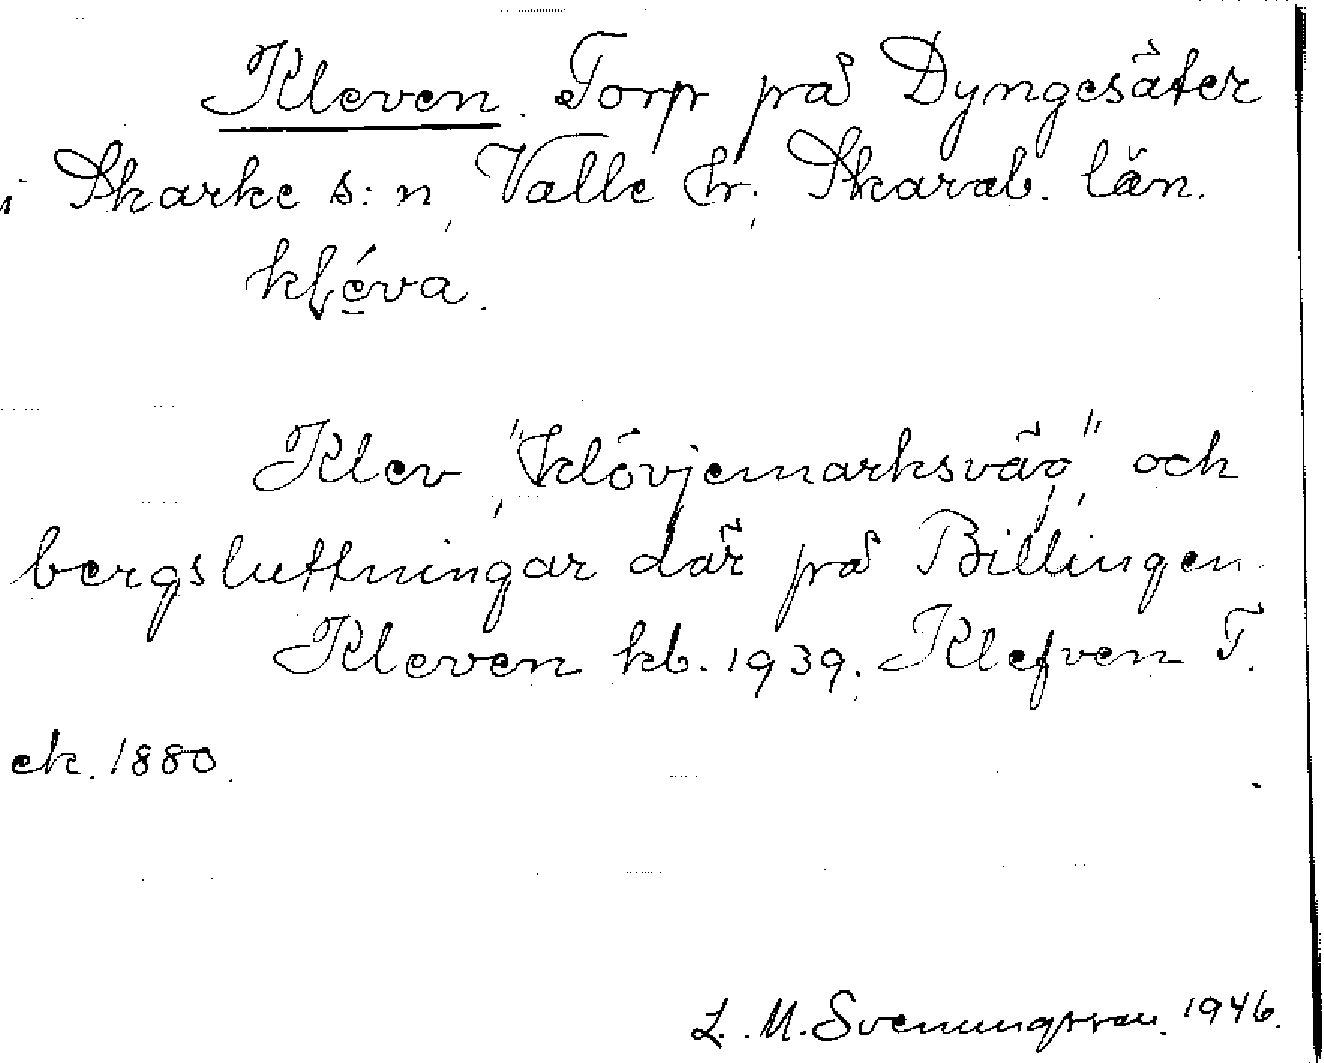 Kleven. Torp på Dyngesäter
i Skarke s:n, Valle hr; Skarab. län.
kléva.
Klev, "klövjemarksväg", och
bergsluttningar där på Billingen.
Kleven kb. 1939. Klefven T.
ek. 1880.
L. M. Svenungsson. 1946.